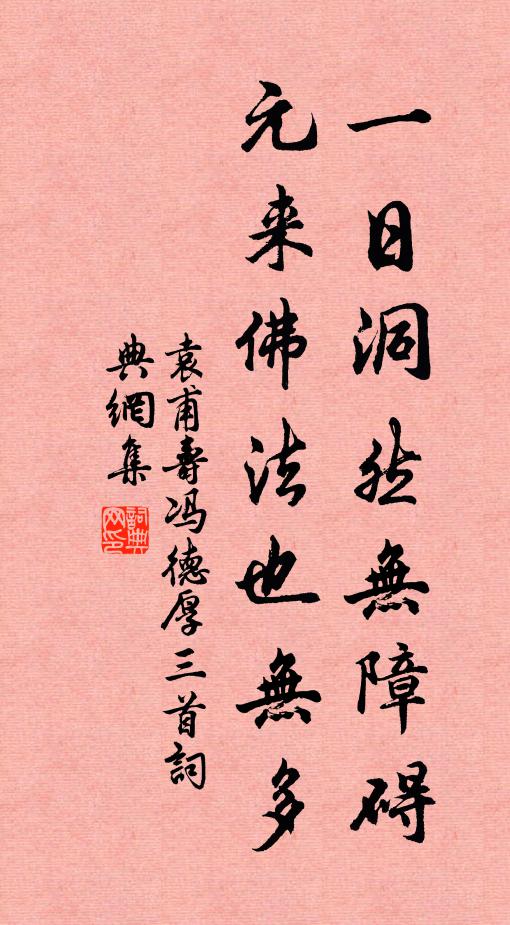 一日洞然無障碍
元来佛法也無多
袁甫壽冯德厚三首詞
典網集
詞典网印